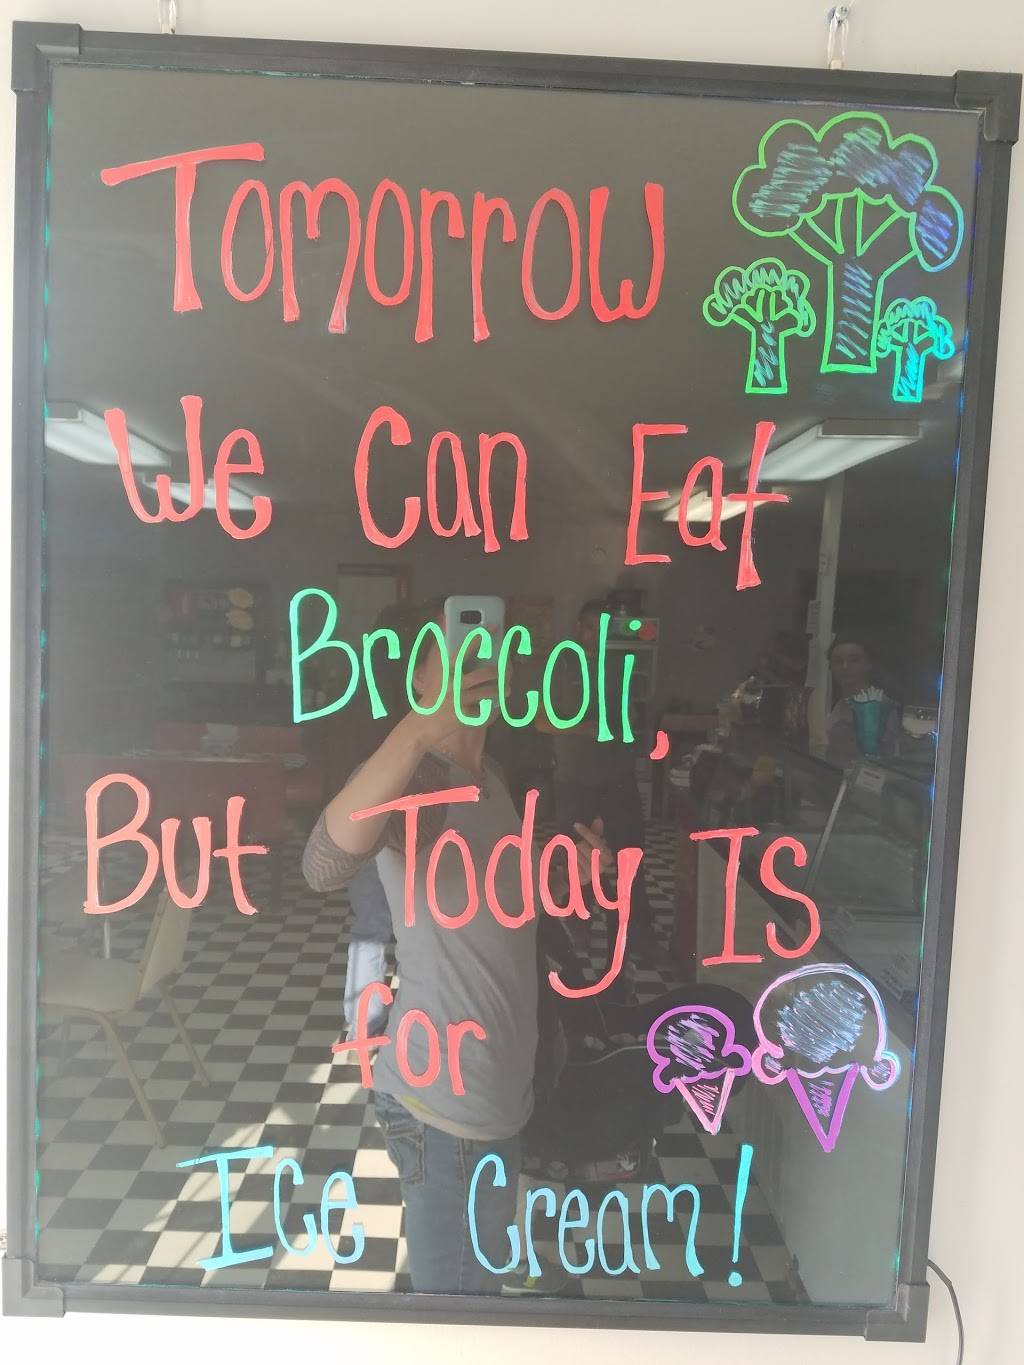 Tomorrow
We Can Eat
Broccoli,
But Today Is
for
Ice Cream!